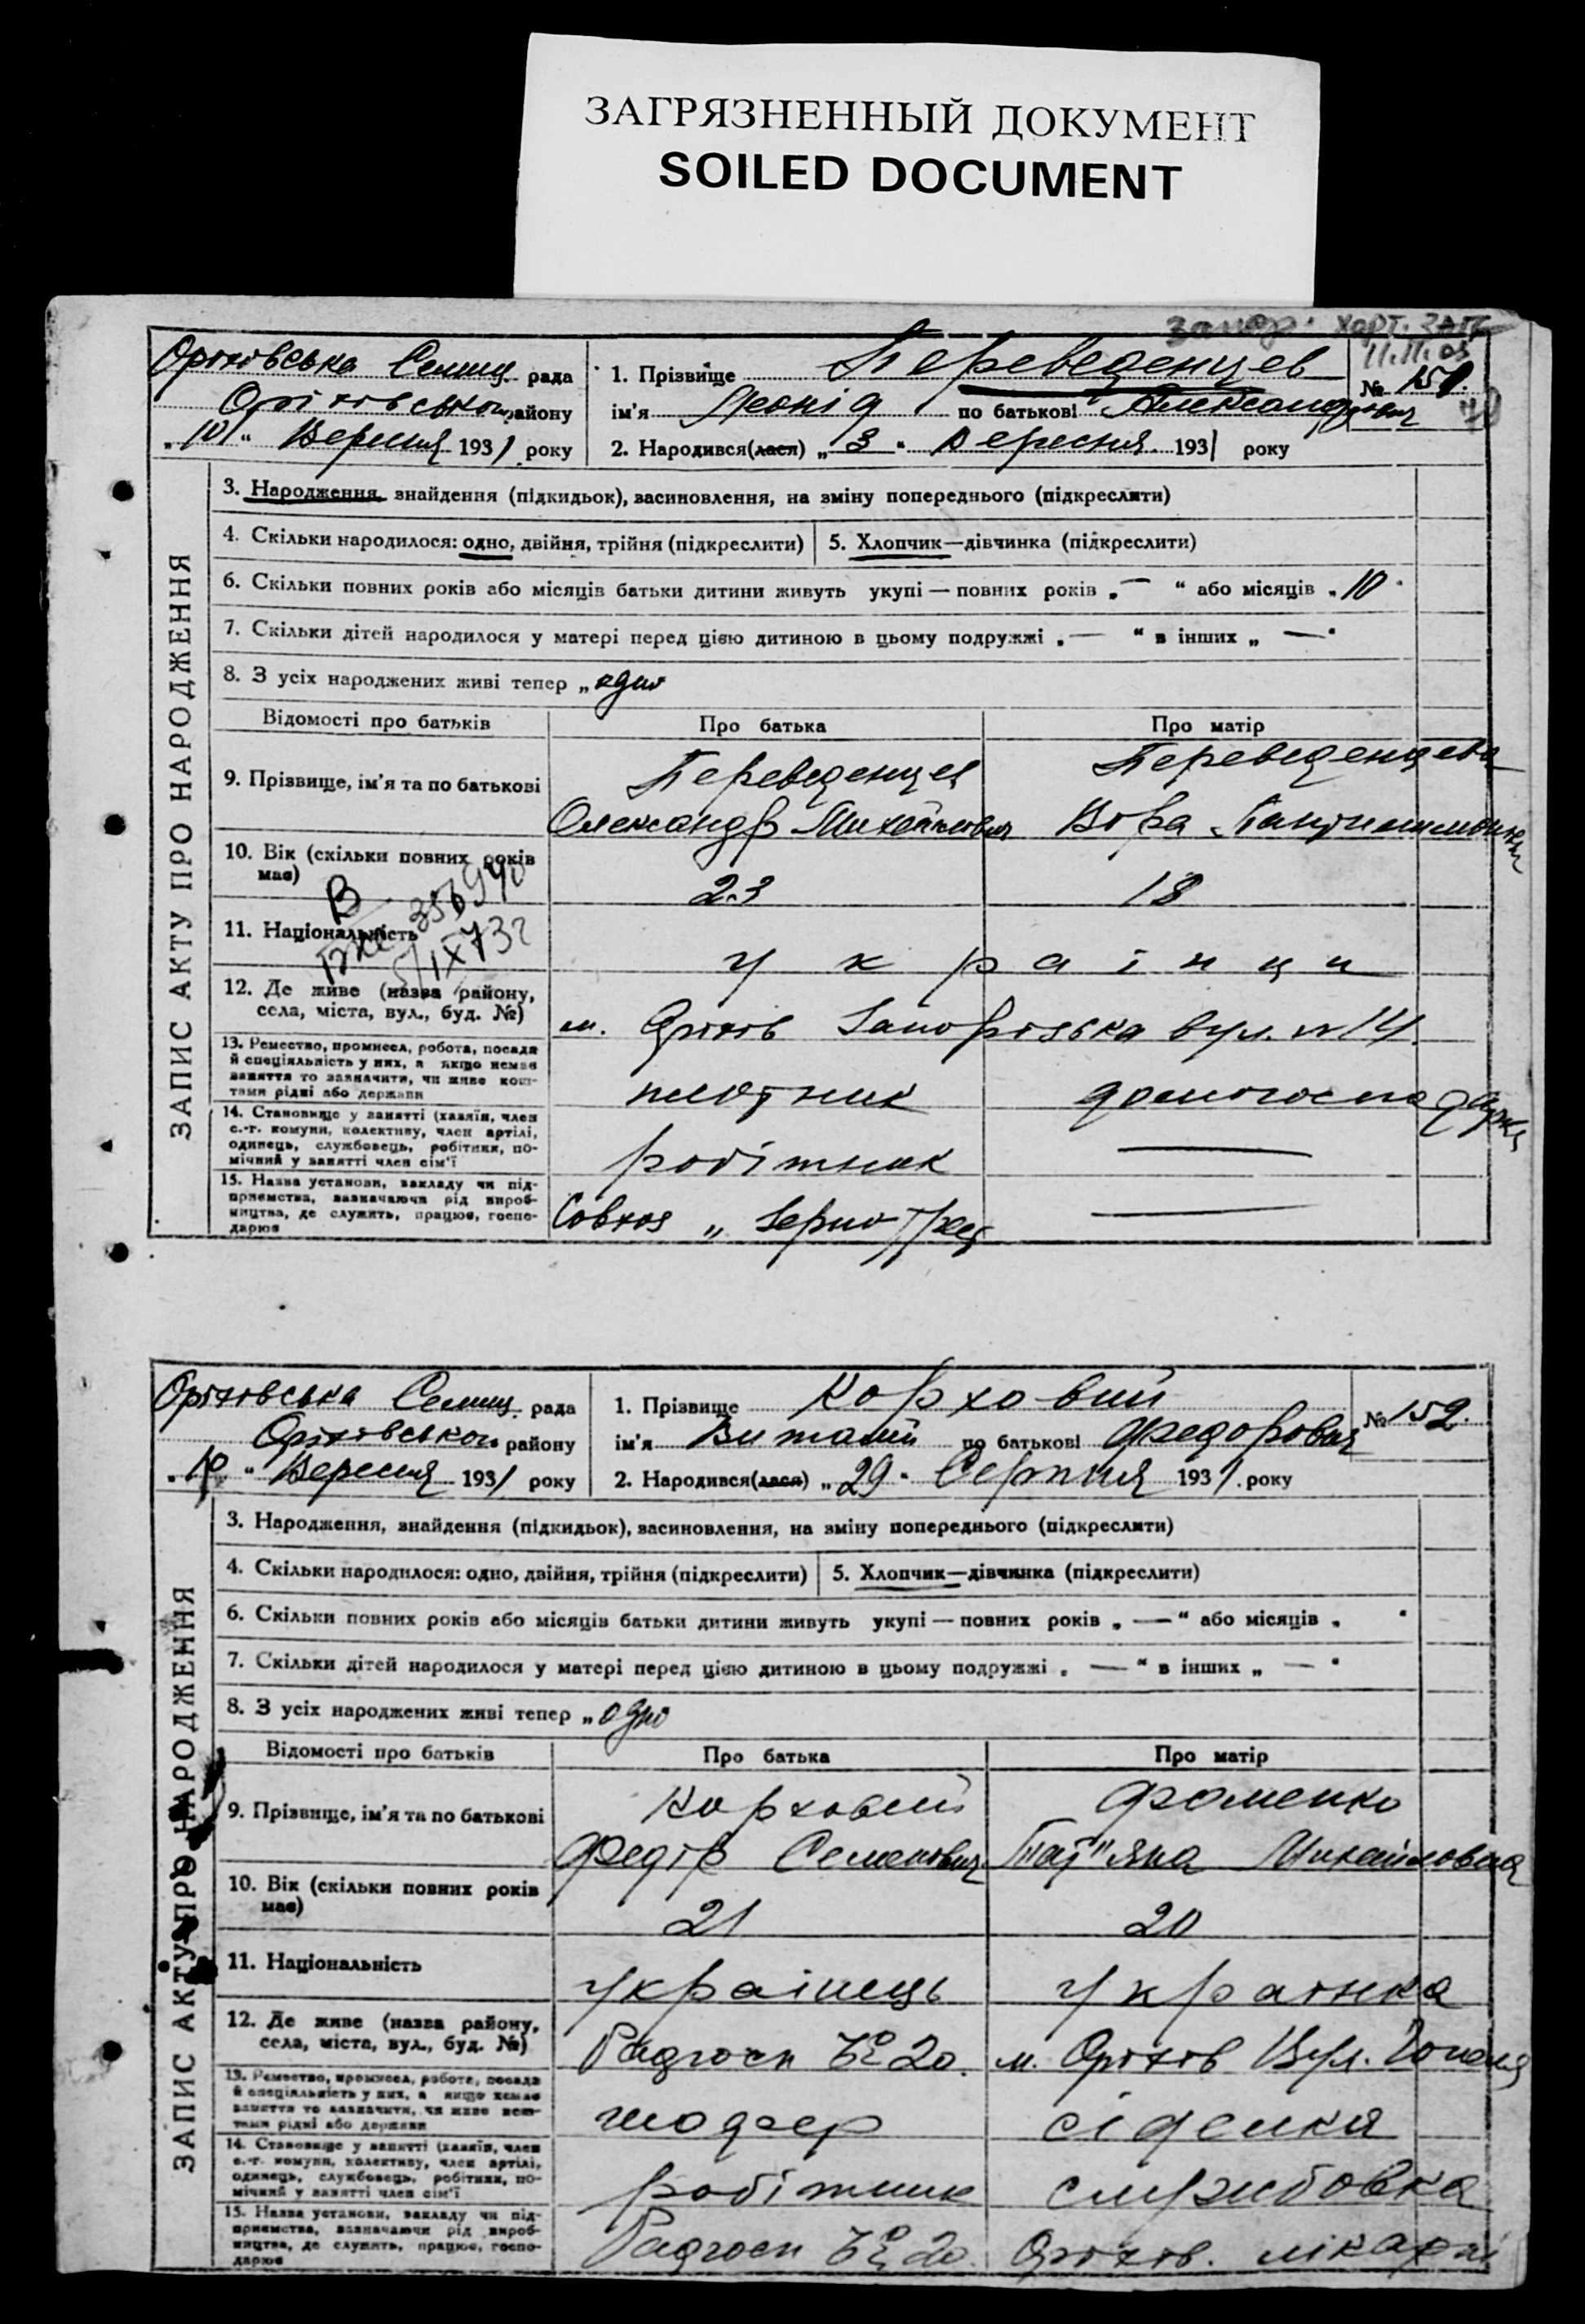 ЗАГРЯЗНЕННЫЙ ДОКУМЕНТ
SOILED DOCUMENT
11.11.03
Оріхівська Селищ. рада
Оріхівського району
„10“ Вересня 1931 року
1. Прізвище Переведенцев
№ 151.
ім'я Леонід по батькові Александрович
2. Народився(лася) „3“ Вересня 1931 року
ЗАПИС АКТУ ПРО НАРОДЖЕННЯ
3. Народження, знайдення (підкидьок), васиновлення, на зміну попереднього (підкреслити)
4. Скільки народилося: одно, двійня, трійня (підкреслити)
5. Хлопчик—дівчинка (підкреслити)
6. Скільки повних років або місяців батьки дитини живуть укупі — повних років „—“ або місяців „10“
7. Скільки дітей народилося у матері перед цією дитиною в цьому подружжі „—“ в інших „—“
8. З усіх народжених живі тепер „одно
Відомості про батьків Про батька Про матір
9. Прізвище, ім'я та по батькові
Переведенцев
Олександр Михайлович
Переведенцева
Вера
10. Вік (скільки повних років має)
23 18
11. Національність
українци
12. Де живе (назва району, села, міста, вул., буд. №)
м. Оріхів Запорізька вул. №14.
13. Ремество, промисел, робота, посада й спеціяльність у них, а якщо немає заняття то зазначити, чи живе коштами рідні або держави
плотник домогосподарка
14. Становище у занятті (хазяїн, член с.-г. комуни, колективу, член артілі, одинець, службовець, робітник, помічний у занятті член сім'ї
робітник —
15. Назва установи, закладу чи підприємства, зазначаючи рід виробництва, де служить, працює, господарює
Совхоз „Зернотрест —
Оріхівська Селищ. рада
Оріхівського району
„10“ Вересня 1931 року
1. Прізвище Корховий
№ 152.
ім'я Виталій по батькові Федорович
2. Народився(лася) „29“ Серпня 1931. року
ЗАПИС АКТУ ПРО НАРОДЖЕННЯ
3. Народження, знайдення (підкидьок), васиновлення, на зміну попереднього (підкреслити)
4. Скільки народилося: одно, двійня, трійня (підкреслити)
5. Хлопчик—дівчинка (підкреслити)
6. Скільки повних років або місяців батьки дитини живуть укупі — повних років „—“ або місяців „ “
7. Скільки дітей народилося у матері перед цією дитиною в цьому подружжі „—“ в інших „—“
8. З усіх народжених живі тепер „одно
Відомості про батьків Про батька Про матір
9. Прізвище, ім'я та по батькові
Корховий
Федір Семенович
Фоменко
Тат"яна Михайловна
10. Вік (скільки повних років має)
21 20
11. Національність
Українець Українка
12. Де живе (назва району, села, міста, вул., буд. №)
Радгосп № 20. м. Оріхів Вул.
13. Ремество, промисел, робота, посада й спеціяльність у них, а якщо немає заняття то зазначити, чи живе коштами рідні або держави
шофер сіделка
14. Становище у занятті (хазяїн, член с.-г. комуни, колективу, член артілі, одинець, службовець, робітник, помічний у занятті член сім'ї
робітник службовка
15. Назва установи, закладу чи підприємства, зазначаючи рід виробництва, де служить, працює, господарює
Радгосп № 20. Оріхів. лікарні